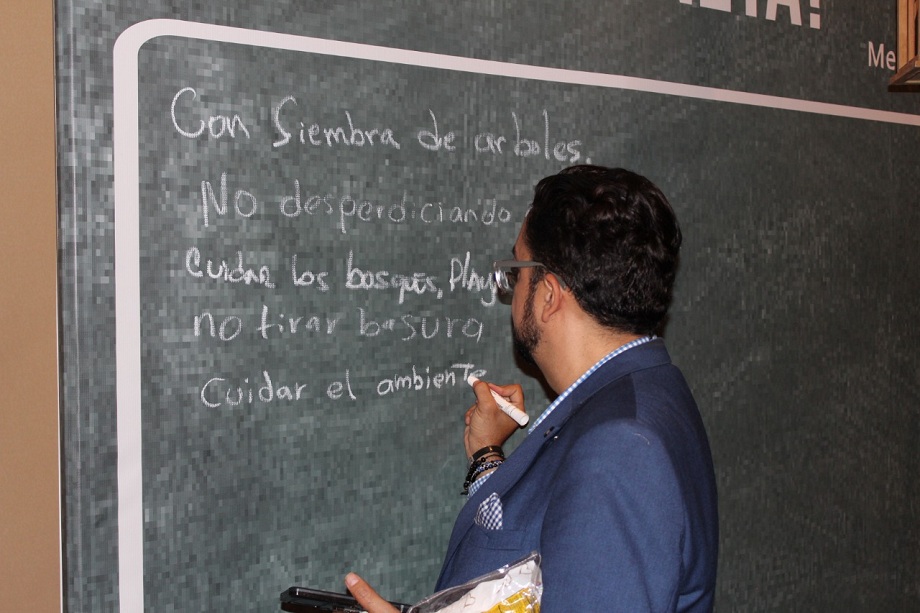 ETA!
Me
Con Siembra de arboles.
No desperdiciando
Cuidar los bosques, Play
no tirar basura
Cuidar el ambiente